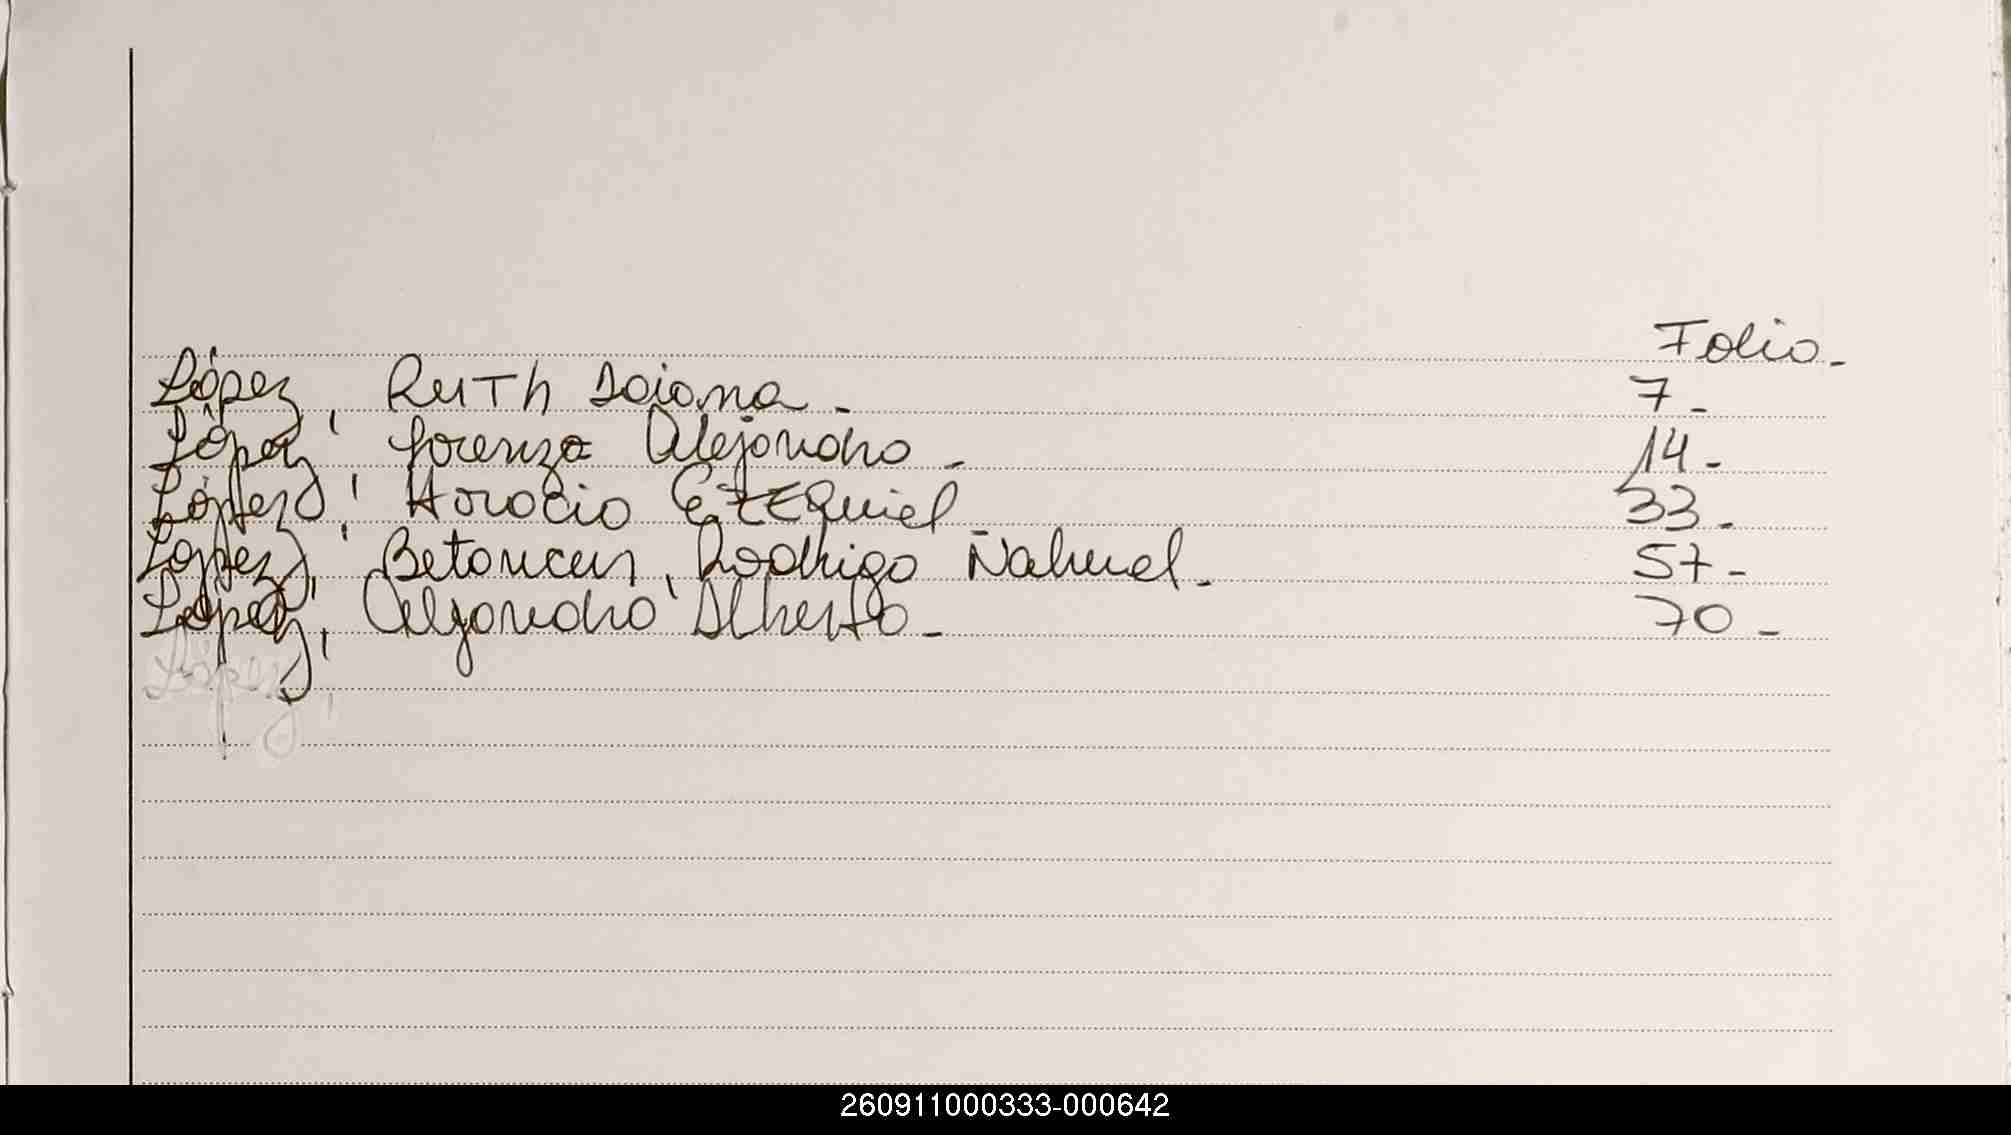 Folio-
López, Ruth Daiana - 7-
López, Lorenzo Alejandro - 14-
López, Horacio Ezequiel - 33-
López, Betancur, Rodrigo Nahuel - 57-
López, Alejandro Alberto - 70-
López,
260911000333-000642